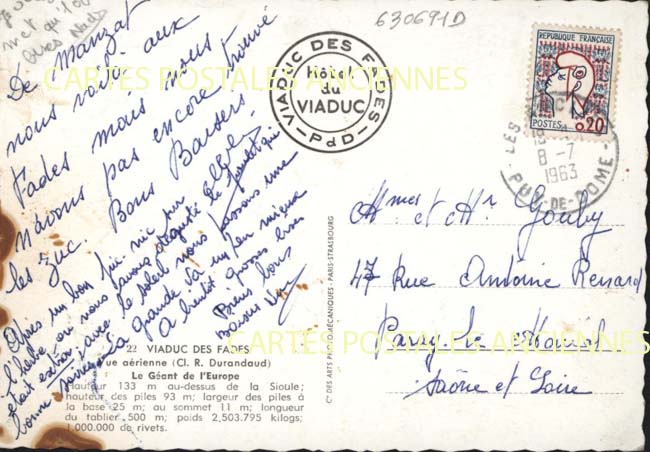 630691D
De Manzat
nous voilà aux
Fades mais nous
n'avons pas encore trouvé
les zuc. Bons Baisers
Après un bon pic nic sur
l'herbe où nous avons dégusté le
était extra avec le soleil nous passons une
bonne journée La grande va un peu mieux
A bientôt grosses bises
bons
baisers
VIADUC DES FADES
Hôtel
du
VIADUC
PdD
CARTES POSTALES ANCIENNES
REPUBLIQUE FRANÇAISE
POSTES 0,20
LES
8-7
1963
PUY-DE-DOME
Mmes et Mr Gouby
47 Rue Antoine Renard
Paray-le-Monial
Saône et Loire
CARTES POSTALES ANCIENNES
22 VIADUC DES FADES
Vue aérienne (Cl. R. Durandaud)
Le Géant de l'Europe
Hauteur 133 m au-dessus de la Sioule;
hauteur des piles 93 m; largeur des piles à
la base 25 m; au sommet 11 m; longueur
du tablier 500 m; poids 2,503.795 kilogs;
1.000.000 de rivets.
Cie DES ARTS PHOTOMÉCANIQUES - PARIS-STRASBOURG